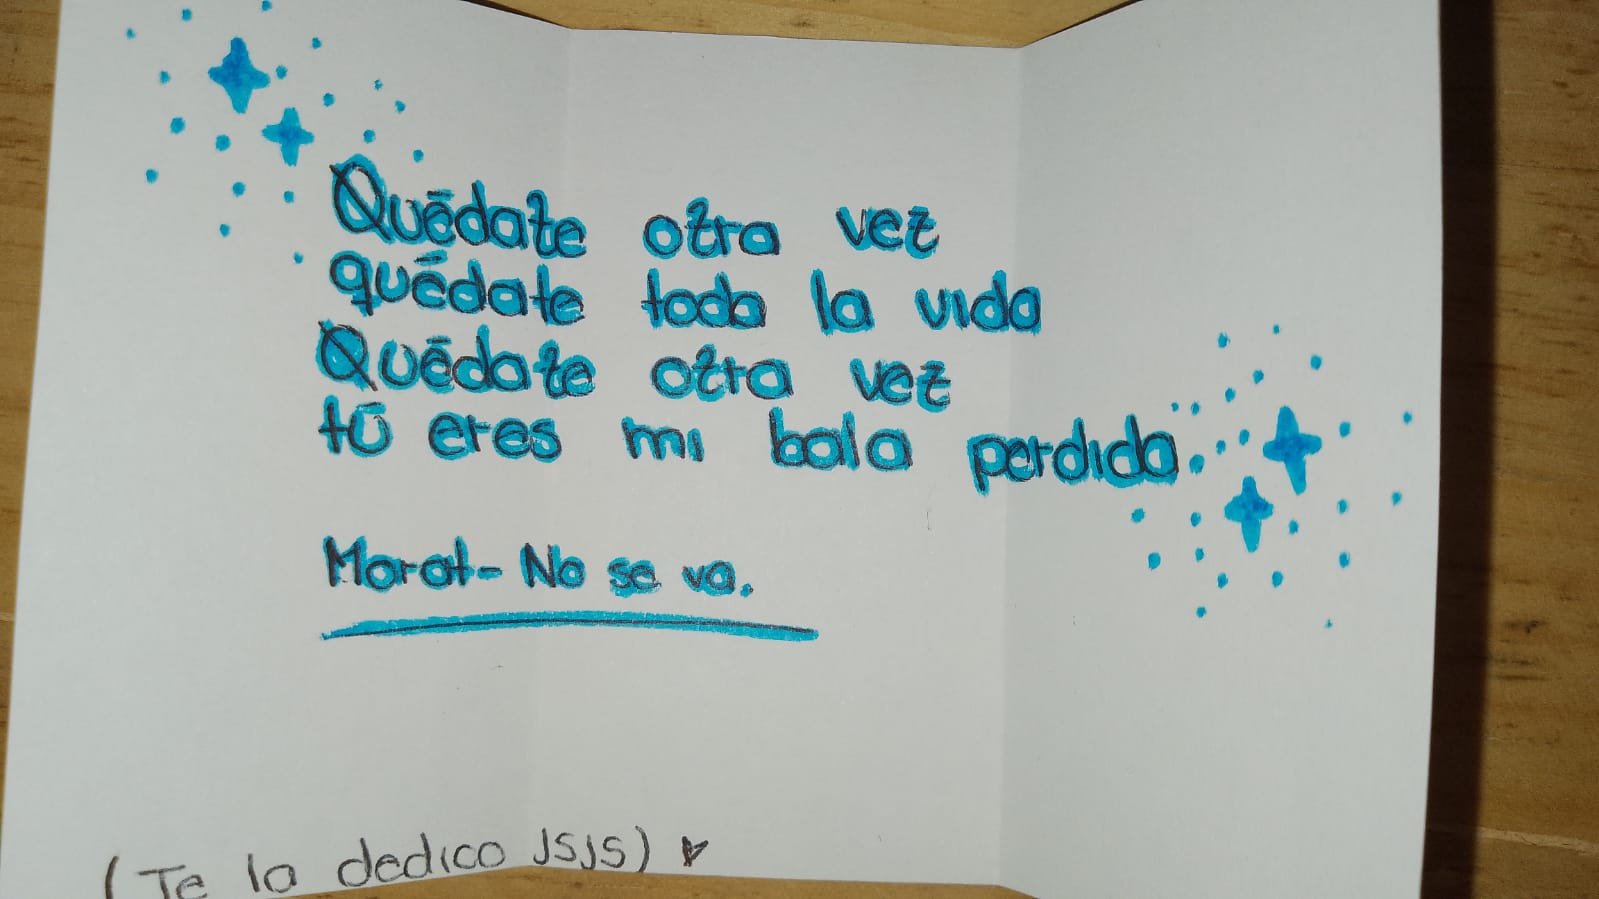 Quédate otra vez
quédate toda la vida
Quédate otra vez
tú eres mi bala perdida.
Morat- No se va.
(Te la dedico JSJS) ♥